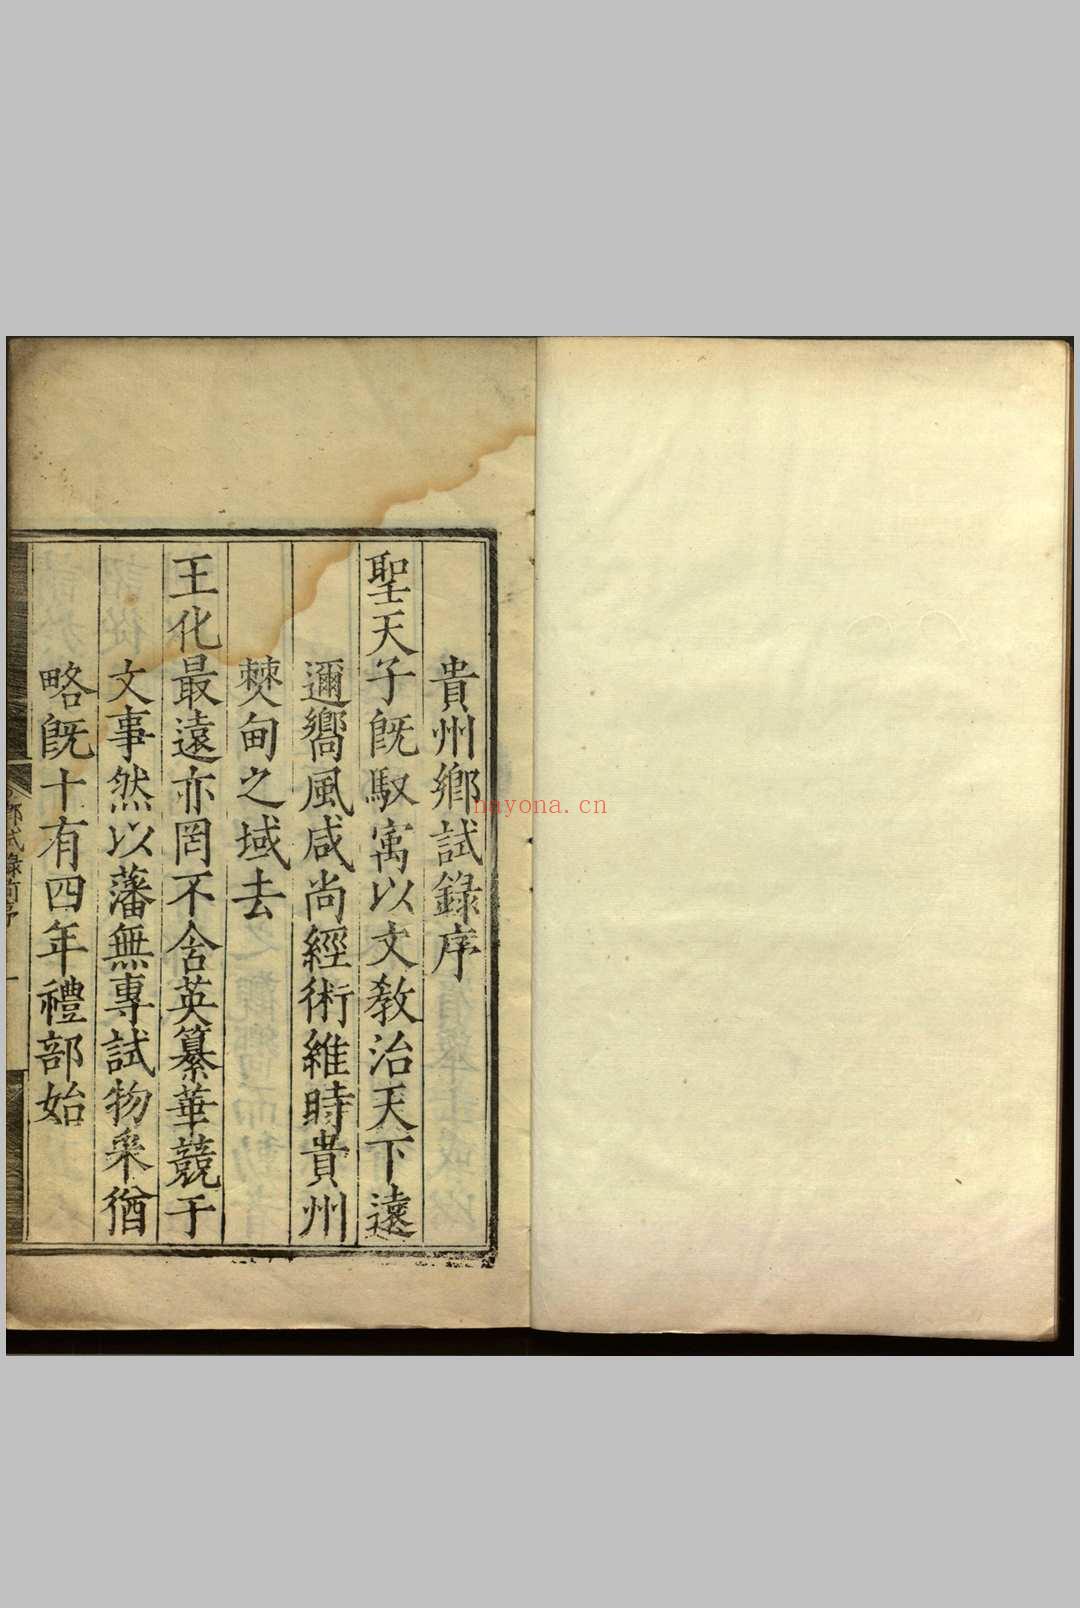 貴州鄉試錄序
聖天子旣馭寓以文敎治天下遠
邇嚮風咸尚經術維時貴州
僰甸之域去
王化最遠亦罔不含英纂華競于
文事然以藩無專試物采猶
略旣十有四年禮部始
鄉試錄前序
一
nayona.cn